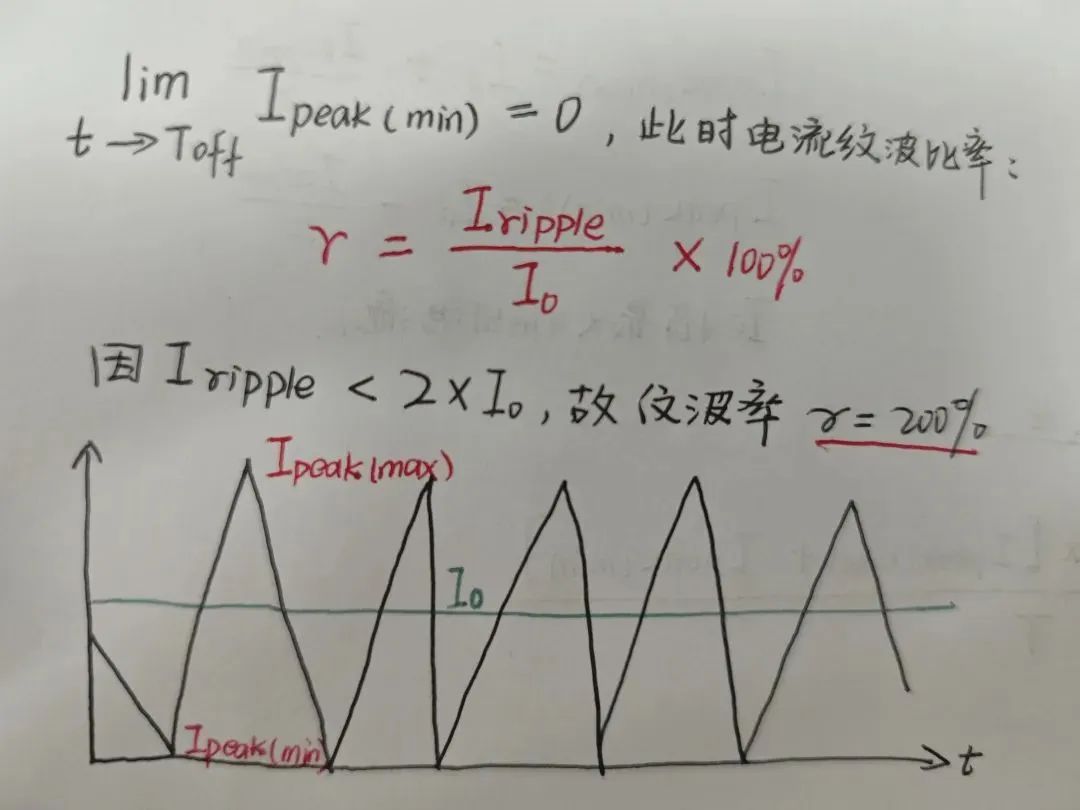 lim
t→Toff Ipeak(min) = 0, 此时电流纹波比率:
r = Iripple / I0 × 100%
因 Iripple < 2×I0, 故纹波率 r = 200%
Ipeak(max)
I0
Ipeak(min)
t